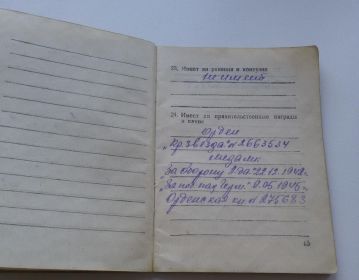 23. Имеет ли ранения и контузии
не имеет
24. Имеет ли правительственные награды
и какие
Орден
"Кр. Звезда" № 2663534
медали
"За оборону 22.12.1942г.
9.05.1945г.
Орденская кн № 275683
15